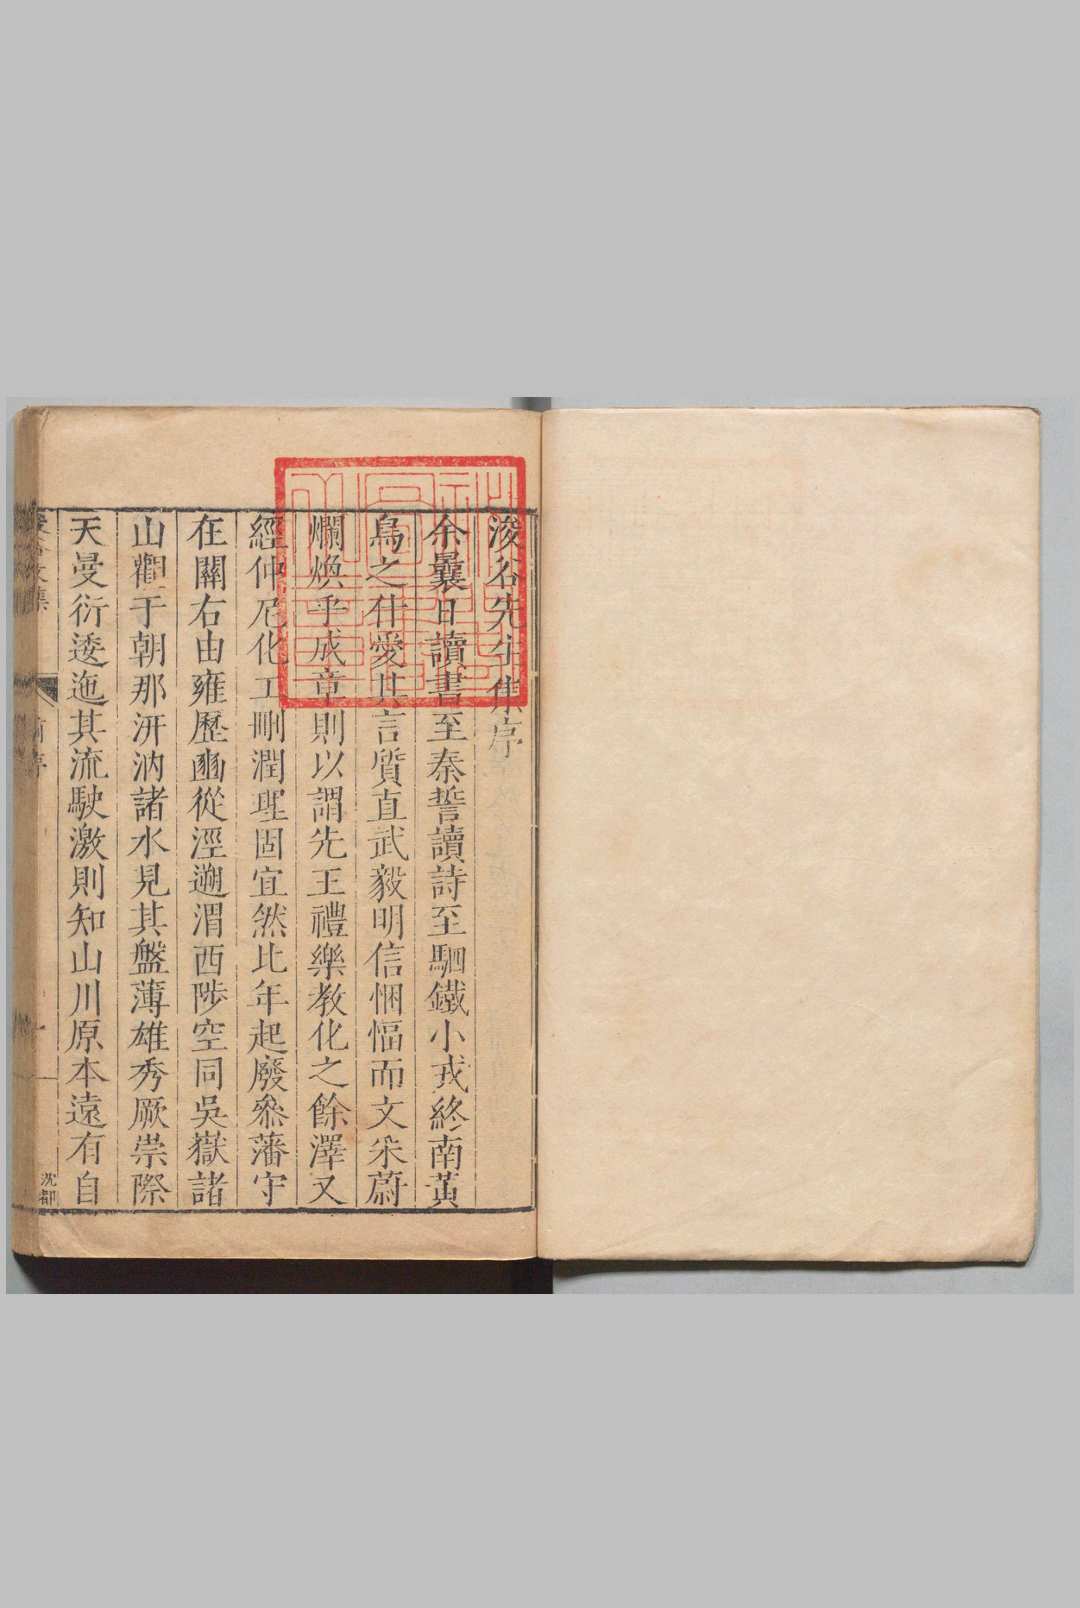 浚谷先生集序
余曩日讀書至秦誓讀詩至駟鐵小戎終南黃
鳥之什愛其言質直武毅明信悃愊而文采蔚
爛煥乎成章則以謂先王禮樂教化之餘澤又
經仲尼化工刪潤理固宜然比年起廢叅藩守
在關右由雍歷豳從涇遡渭西陟空同吳嶽諸
山觀于朝那汧汭諸水見其盤薄雄秀厥崇際
天曼衍逶迤其流駛激則知山川原本遠有自
谷文集
前序
一
沈都